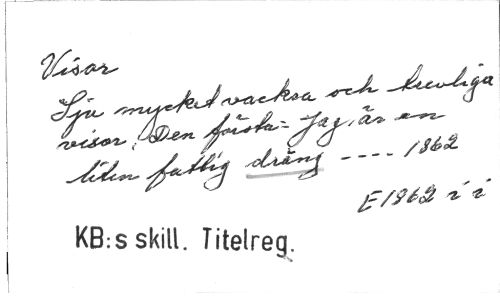 Visor
Sju mycket vackra och trevliga
visor. Den första: Jag är en
liten fattig dräng ---- 1862
E1862 i i
KB:s skill. Titelreg.